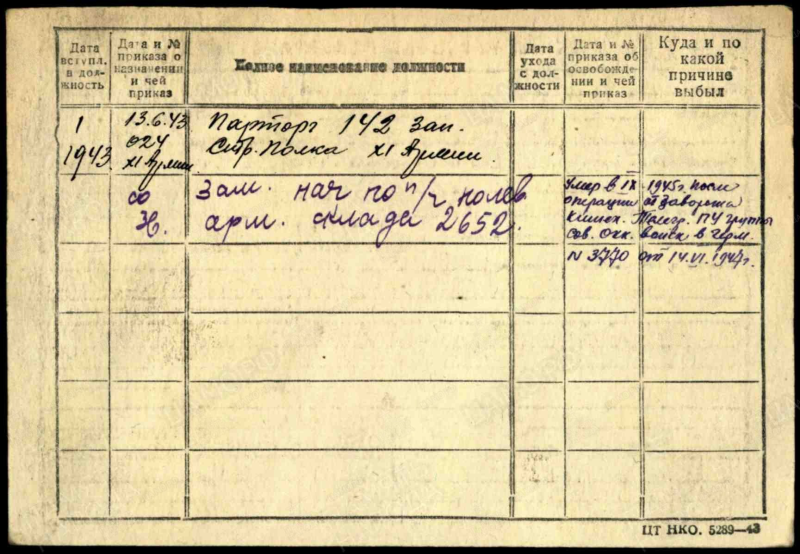 Дата вступл. в дол- жность
Дата и № приказа о назначении и чей приказ
Полное наименование должности
Дата ухода с дол- жности
Дата и № приказа об освобожде- нии и чей приказ
Куда и по какой причине выбыл
1 1943.
13.6.43 024 XI Армии
Парторг 142 Зап.
Стр. Полка XI Армии.
Зам. нач по п/ч полев
арм. склада 2652
Умер в IX 1945г. после
операции от заворота
кишек. ПУ группы
сов. окк. войск в Герм.
N 3770 от 14.VI.1947г.
ЦТ НКО. 5289—43